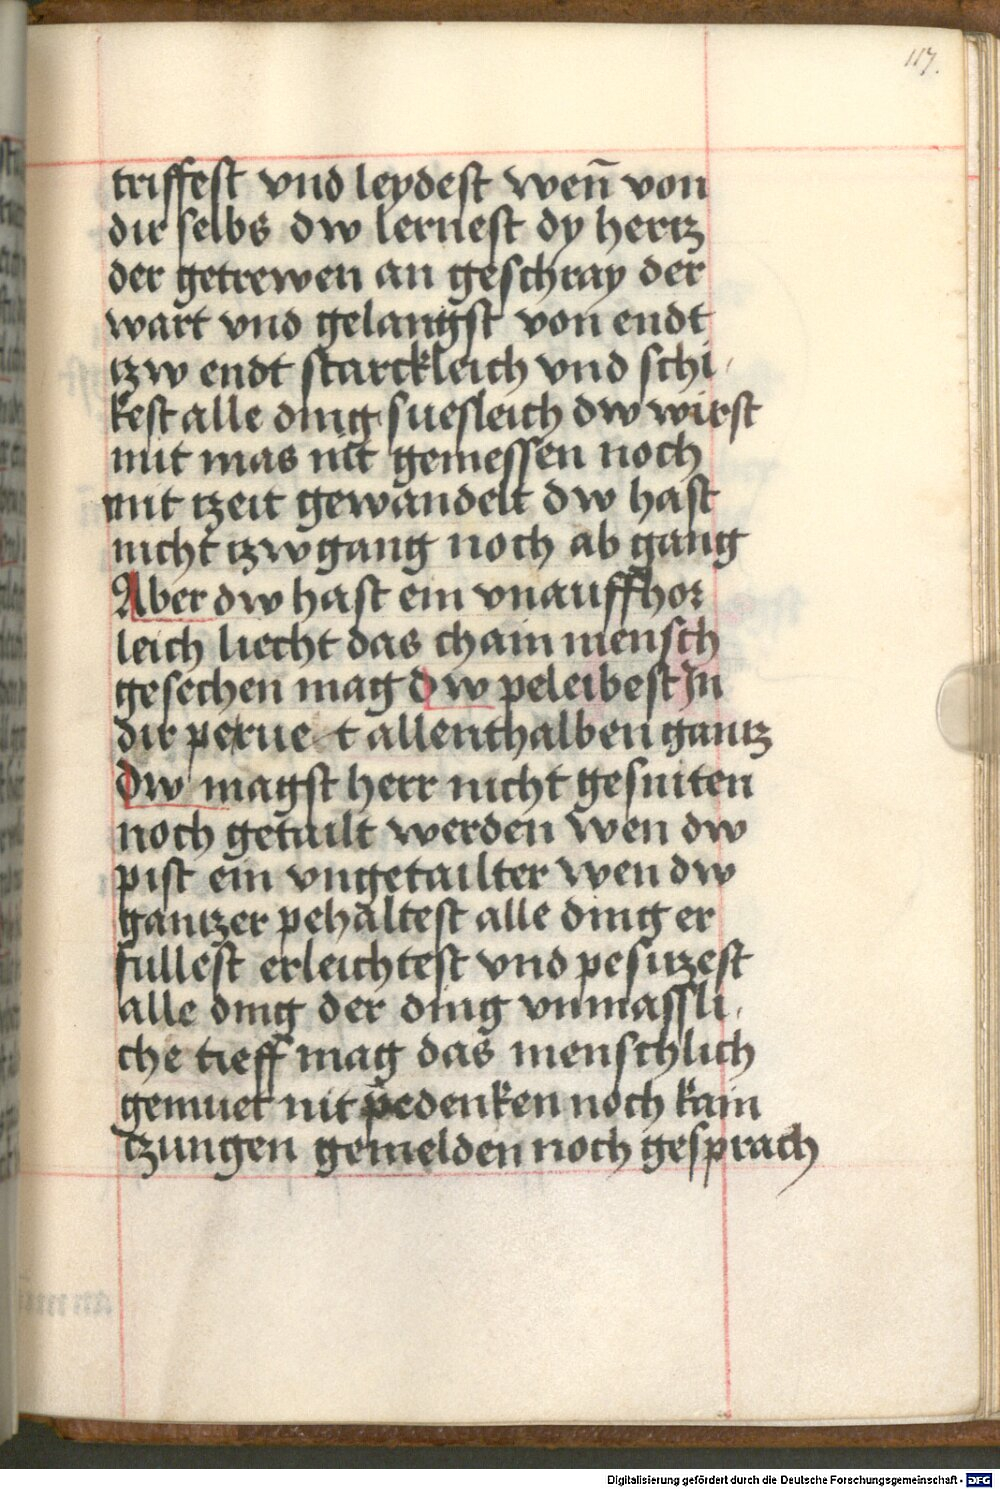 117.
triffest vnd leydest wen̄ von
dir selbs dw lernest dy hertz
der getrewen an geschray der
wart vnd gelangst von endt
tzw endt starckleich vnd schi
kest alle ding suesleich dw wirst
mit mas nit gemessen noch
mit tzeit gewandelt dw hast
nicht tzwgang noch ab gang
Aber dw hast ein vnauffhor
leich liecht das chain mensch
gesechen mag dw peleibest In
dir allenthalben gantz
dw magst herr nicht gesniten
noch getailt werden wen dw
pist ein vngetailter wen dw
gantzer pehaltest alle ding er
fullest erleichtest vnd pesitzest
alle ding der ding vnmassli
che tieff mag das menschlich
gemuet nit pedenken noch kain
tzungen gemelden noch gesprach
Digitalisierung gefördert durch die Deutsche Forschungsgemeinschaft - DFG